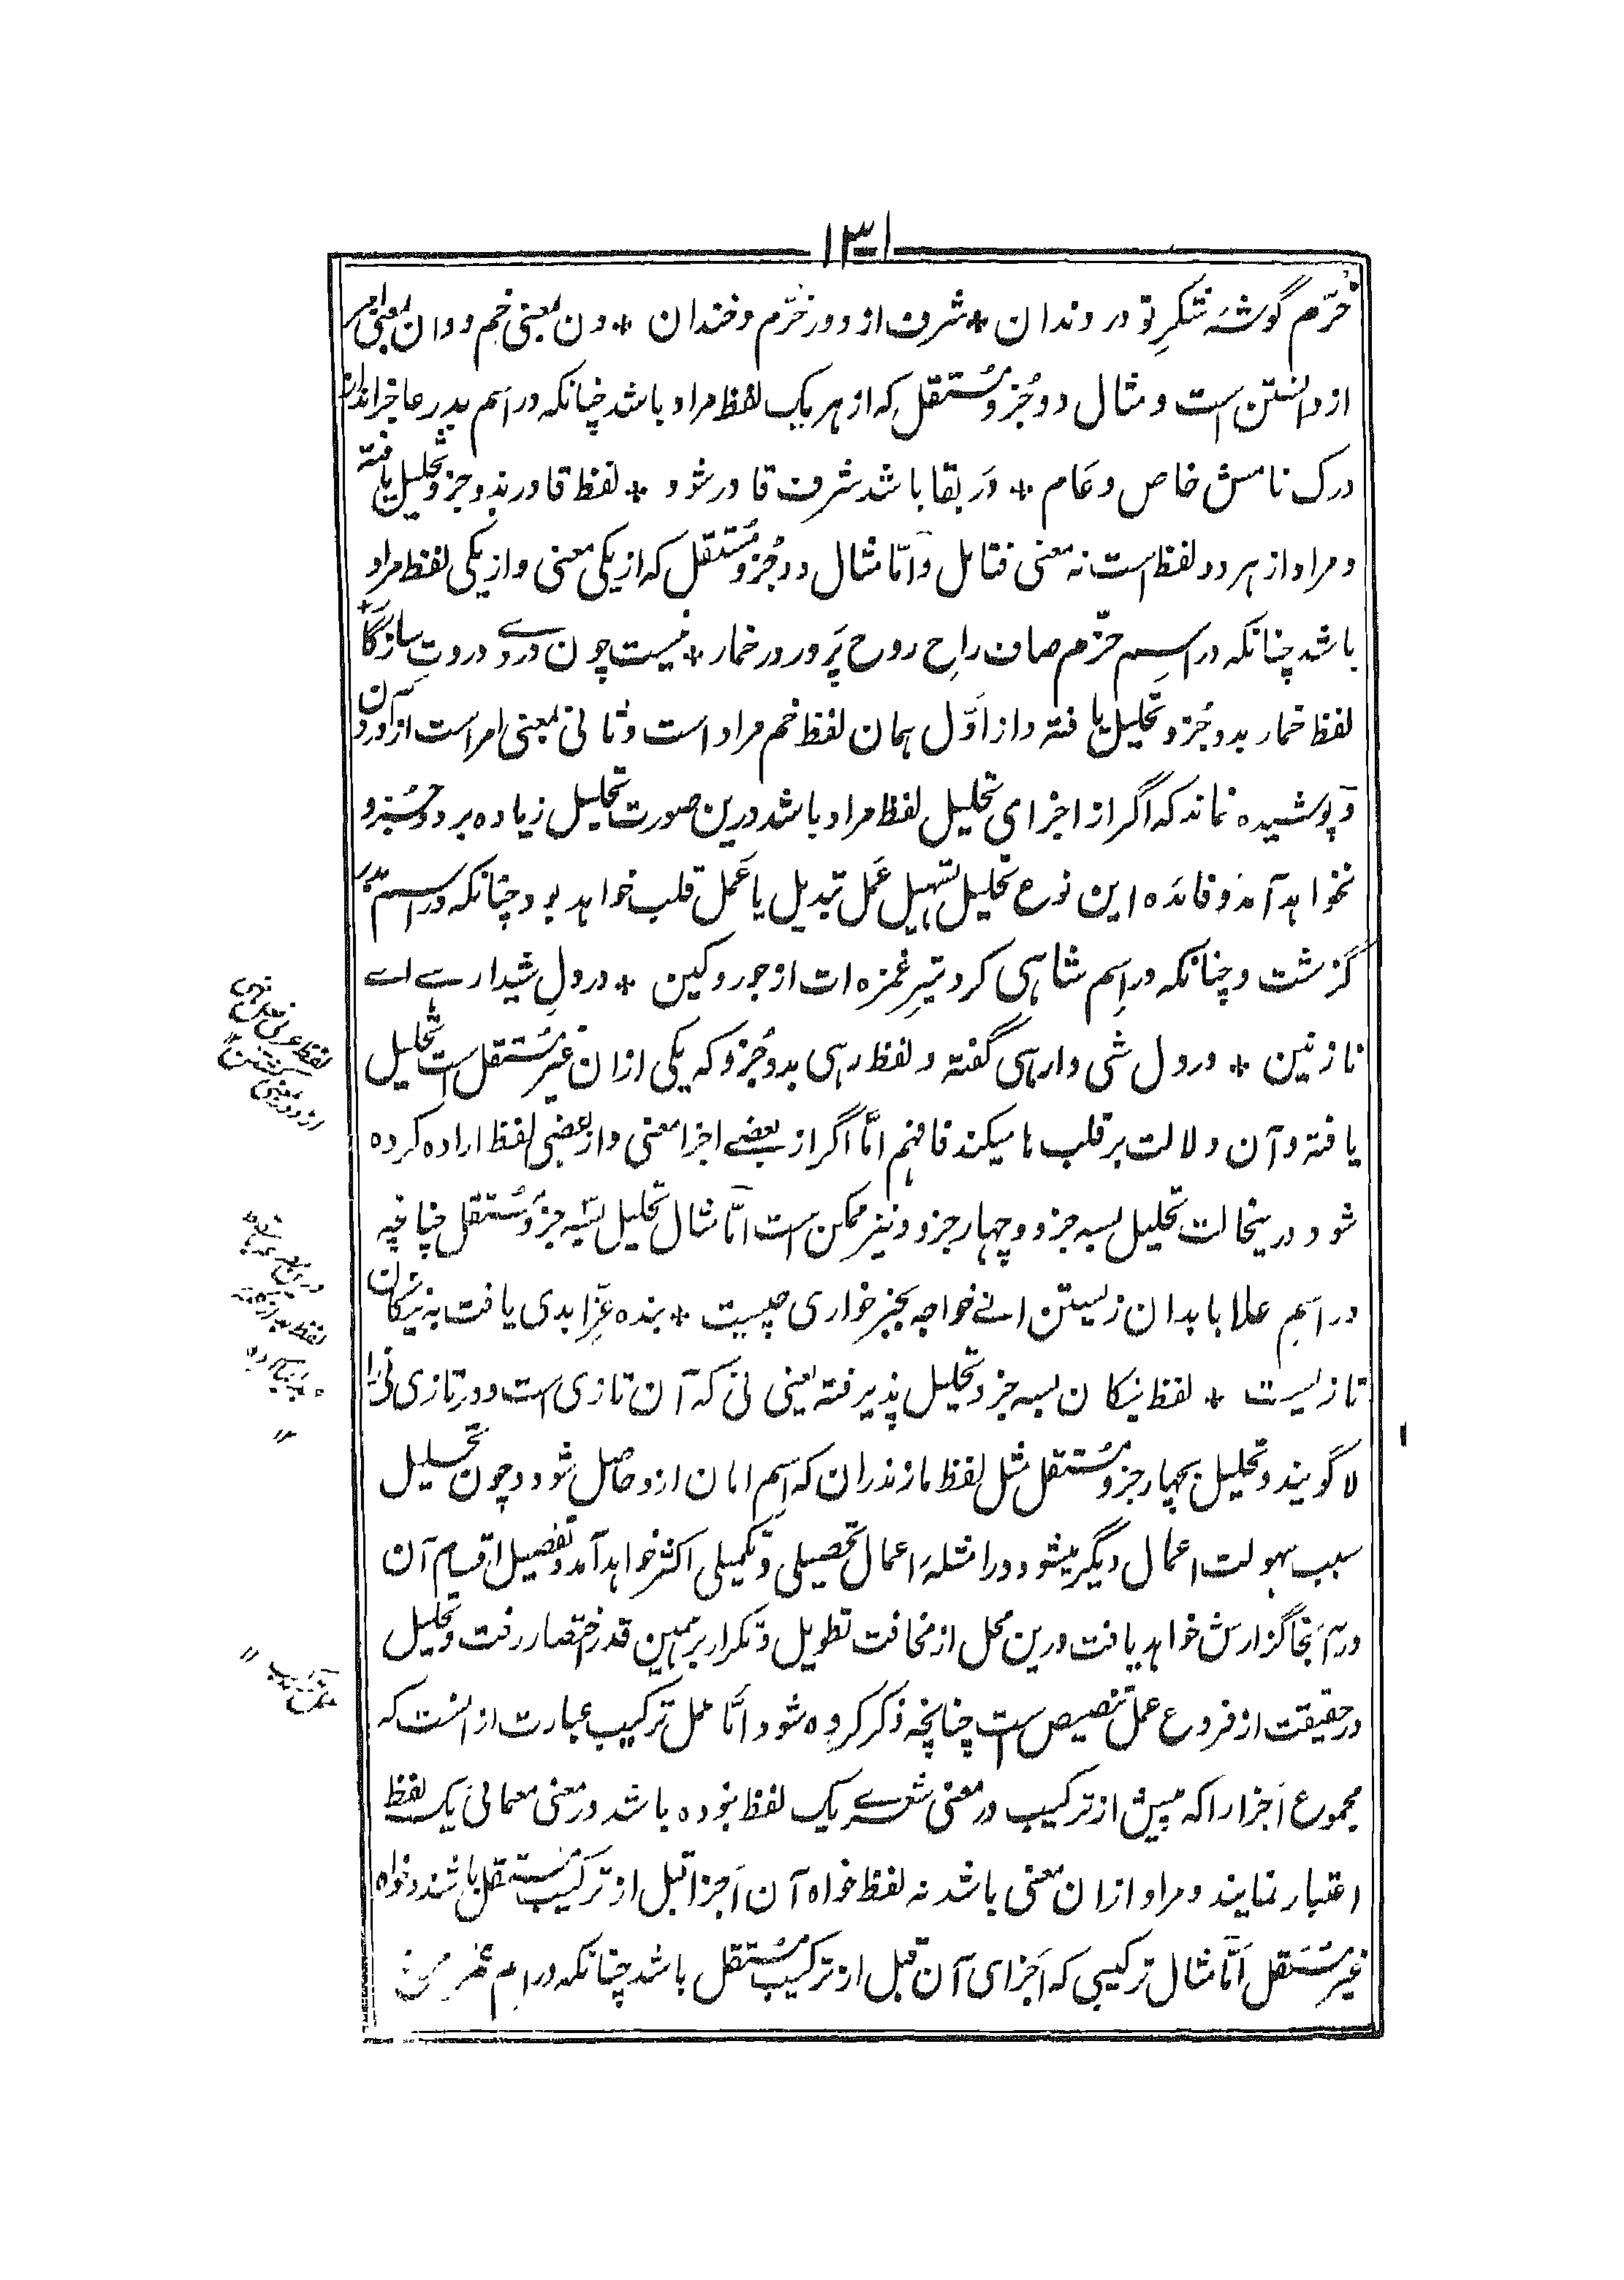 ١٣١
خرّم گوشهٔ شکرِ تو در دندان * شرف از دور خرّم و خندان * دن بمعنی خم و دان بمعنی امر
از دانستن است و مثال دو جُزوِ مُستقل که از هر یک لفظ مراد باشد چنانکه در اسم بدر عاجز اند از
درک نامش خاص و عَام * دَر بقا باشد شرف قادر شود * لفظ قادر بدو جزو تحلیل یافته
و مراد از هر دو لفظ است نه معنی فتامل و امّا مثال دو جُزوِ مُستقل که از یکی معنی و از یکی لفظ مراد
باشد چنانکه در اسِم خرّم صاف راحِ روح پَرور در خمار * نیست چون دردے دردت سازگار
لفظ خمار بدو جُزو تحلیل یافته و از اَوّل همان لفظ خم مراد است و ثانی بمعنی امر است از آوردن
و پوشیده نماند که اگر از اجزای تحلیل لفظ مراد باشد درین صورت تحلیل زیاده بر دو جُزو
نخواهد آمد و فائده این نوع تحلیل تسهیل عَمل تبدیل یا عَمل قلب خواهد بود چنانکه در اسم بدر
گزشت و چنانکه در اِسم شاهی کرد تیرِ غمزه ات از جور و کین * در دلِ شیدا رسے اے
نازنین * در دل شی دار هی گفته و لفظ رهی بدو جُزو که یکی ازان غیر مُستقل است تحلیل
یافته و آن دلالت بر قلب ها میکند فافهم امّا اگر از بعضے اجزا معنی و از بعضی لفظ اراده کرده
شود درینحالت تحلیل بسه جزو و چهار جزو نیز ممکن است امّا مثال تحلیل بسه جزو مُستقل چنانچه
در اسِم علا با بدان زیستن اے خواجه بجز خواری چیست * بنده عِزّ ابدی یافت به نیکان
تا زیست * لفظ نیکان بسه جزو تحلیل پذیرفته یعنی نی که آن تازی است و در تازی نی را
لا گویند و تحلیل بچهار جزو مُستقل مثل لفظ مازندران که اسِم امان ازو حاصل شود و چون تحلیل
سبب سهولت اعمال دیگر میشود در امثلهٔ اعمال تحصیلی و تکمیلی اکثر خواهد آمد و تفصیل اقسام آن
در آنجا گزارش خواهد یافت درین محل از مخافت تطویل و تکرار بر همین قدر اختصار رفت و تحلیل
در حقیقت از فروع عمل تنصیص است چنانچه ذکر کرده شود امّا عمل ترکیب عبارت از انست که
مجموع اَجزا را که پیش از ترکیب در معنی شعرے یک لفظ نبوده باشد در معنی معمائی یک لفظ
اعتبار نمایند و مراد ازان معنی باشد نه لفظ خواه آن اَجزا قبل از ترکیب مُستقل باشند و خواه
غیر مُستقل اَمّا مثال ترکیبی که اَجزای آن قبل از ترکیب مُستقل باشد چنانکه در اسِم